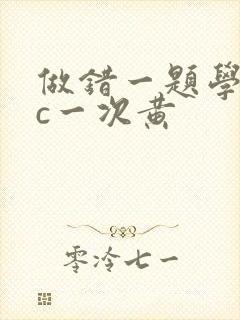 做錯一題學
c一次黃
零泠七一